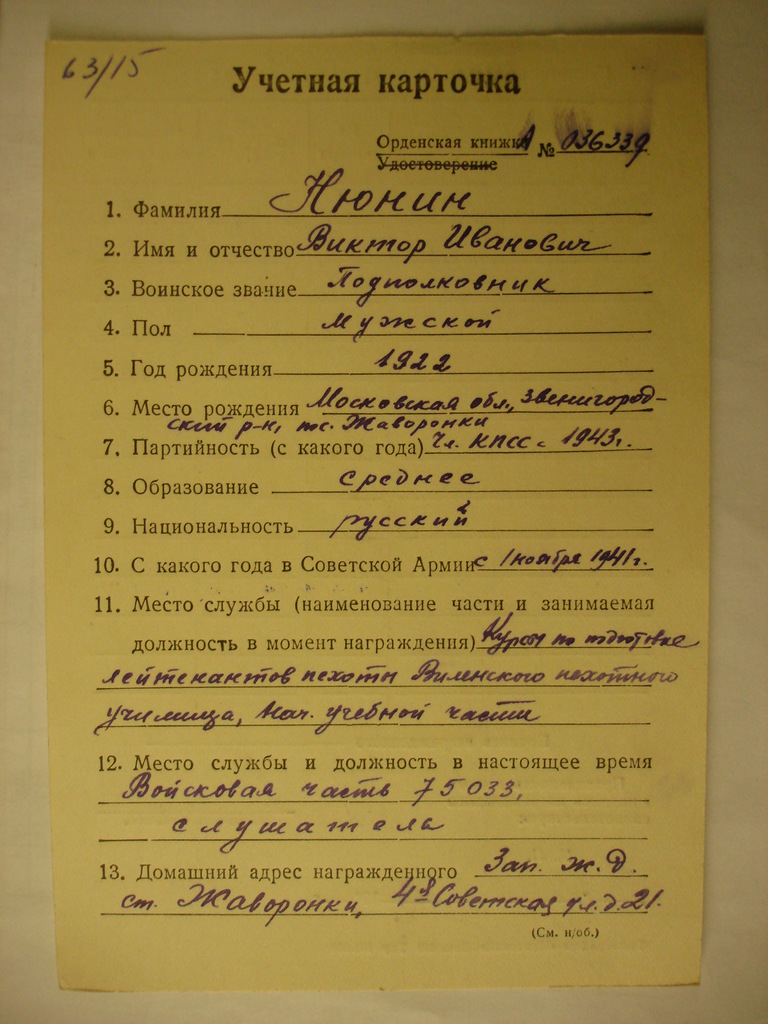 63/15
Учетная карточка
Орденская книжка А № 036339
Удостоверение
1. Фамилия Нюнин
2. Имя и отчество Виктор Иванович
3. Воинское звание Подполковник
4. Пол Мужской
5. Год рождения 1922
6. Место рождения Московская обл., Звенигород-
ский р-н, пс. Жаворонки
7. Партийность (с какого года) Чл. КПСС с 1943г.
8. Образование среднее
9. Национальность русский
10. С какого года в Советской Армии с 1 ноября 1941 г.
11. Место службы (наименование части и занимаемая
должность в момент награждения) Курсы по подготовке
лейтенантов пехоты Виленского пехотного
училища, нач. учебной части
12. Место службы и должность в настоящее время
Войсковая часть 75033,
слушатель
13. Домашний адрес награжденного Зап. ж.д.
ст. Жаворонки, 4я Советская ул. д. 21.
(См. н/об.)